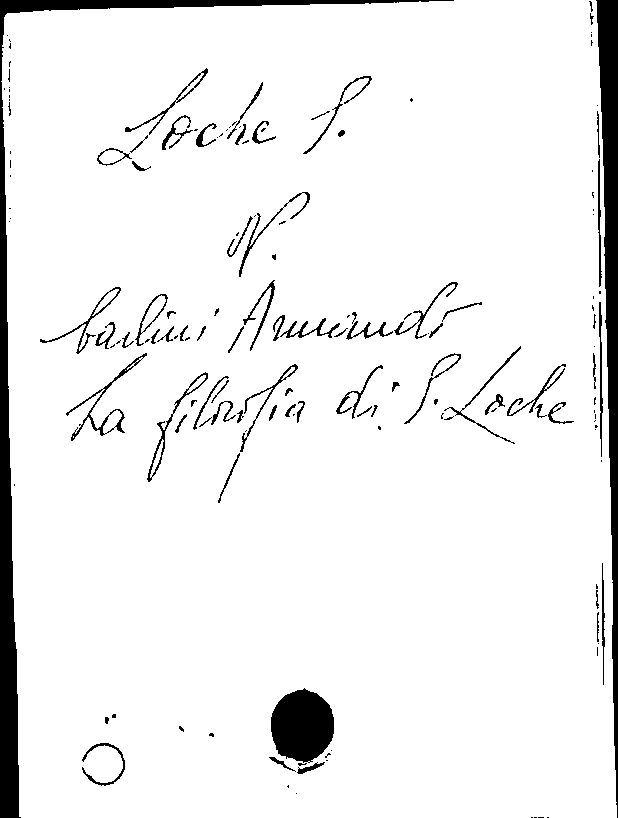 Locke G.
V.
Carlini Armando
La filosofia di G. Locke